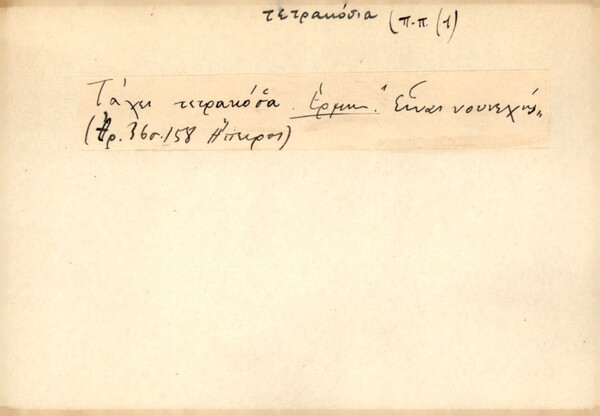 τετρακόσια (π.π. (1)
Τά χει τετρακόσα. Ἑρμην. "Εἶναι νουνεχής"
(Ἀρ. 36 σ. 158 Ἤπειρος)